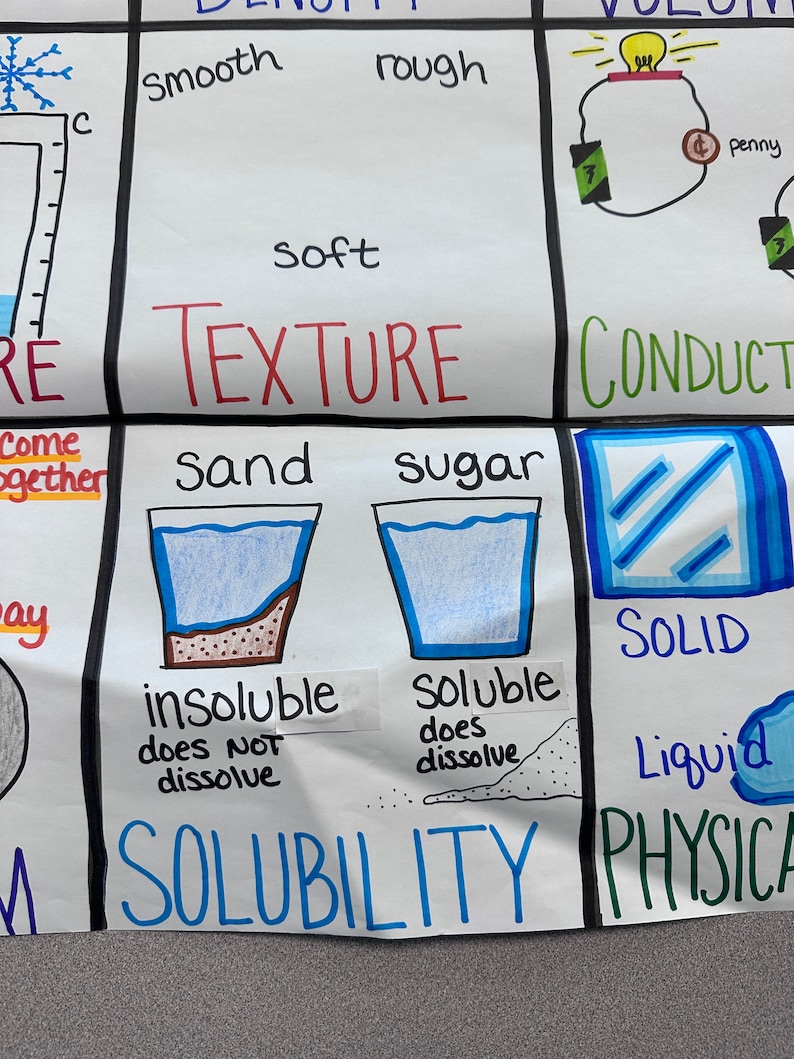 DENSITY
VOLUM
C
RE
smooth
rough
soft
TEXTURE
¢
penny
CONDUCT
come
ogether
way
M
sand
sugar
insoluble
does NOT
dissolve
soluble
does
dissolve
SOLUBILITY
SOLID
Liquid
PHYSICA